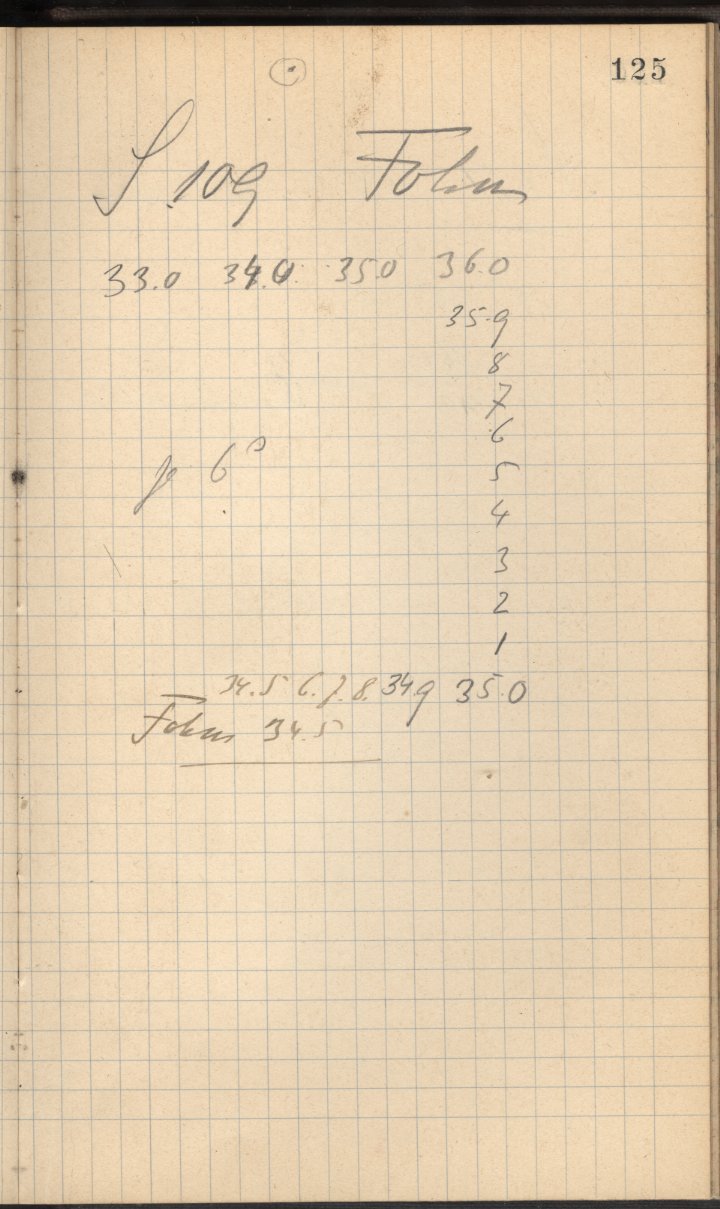 125
S 109 Fokus
33.0 34.0 35.0 36.0
35.9
8
7
6
je 6ˢ
5
4
3
2
1
34.5 6. 7. 8. 34.9 35.0
Fokus 34.5